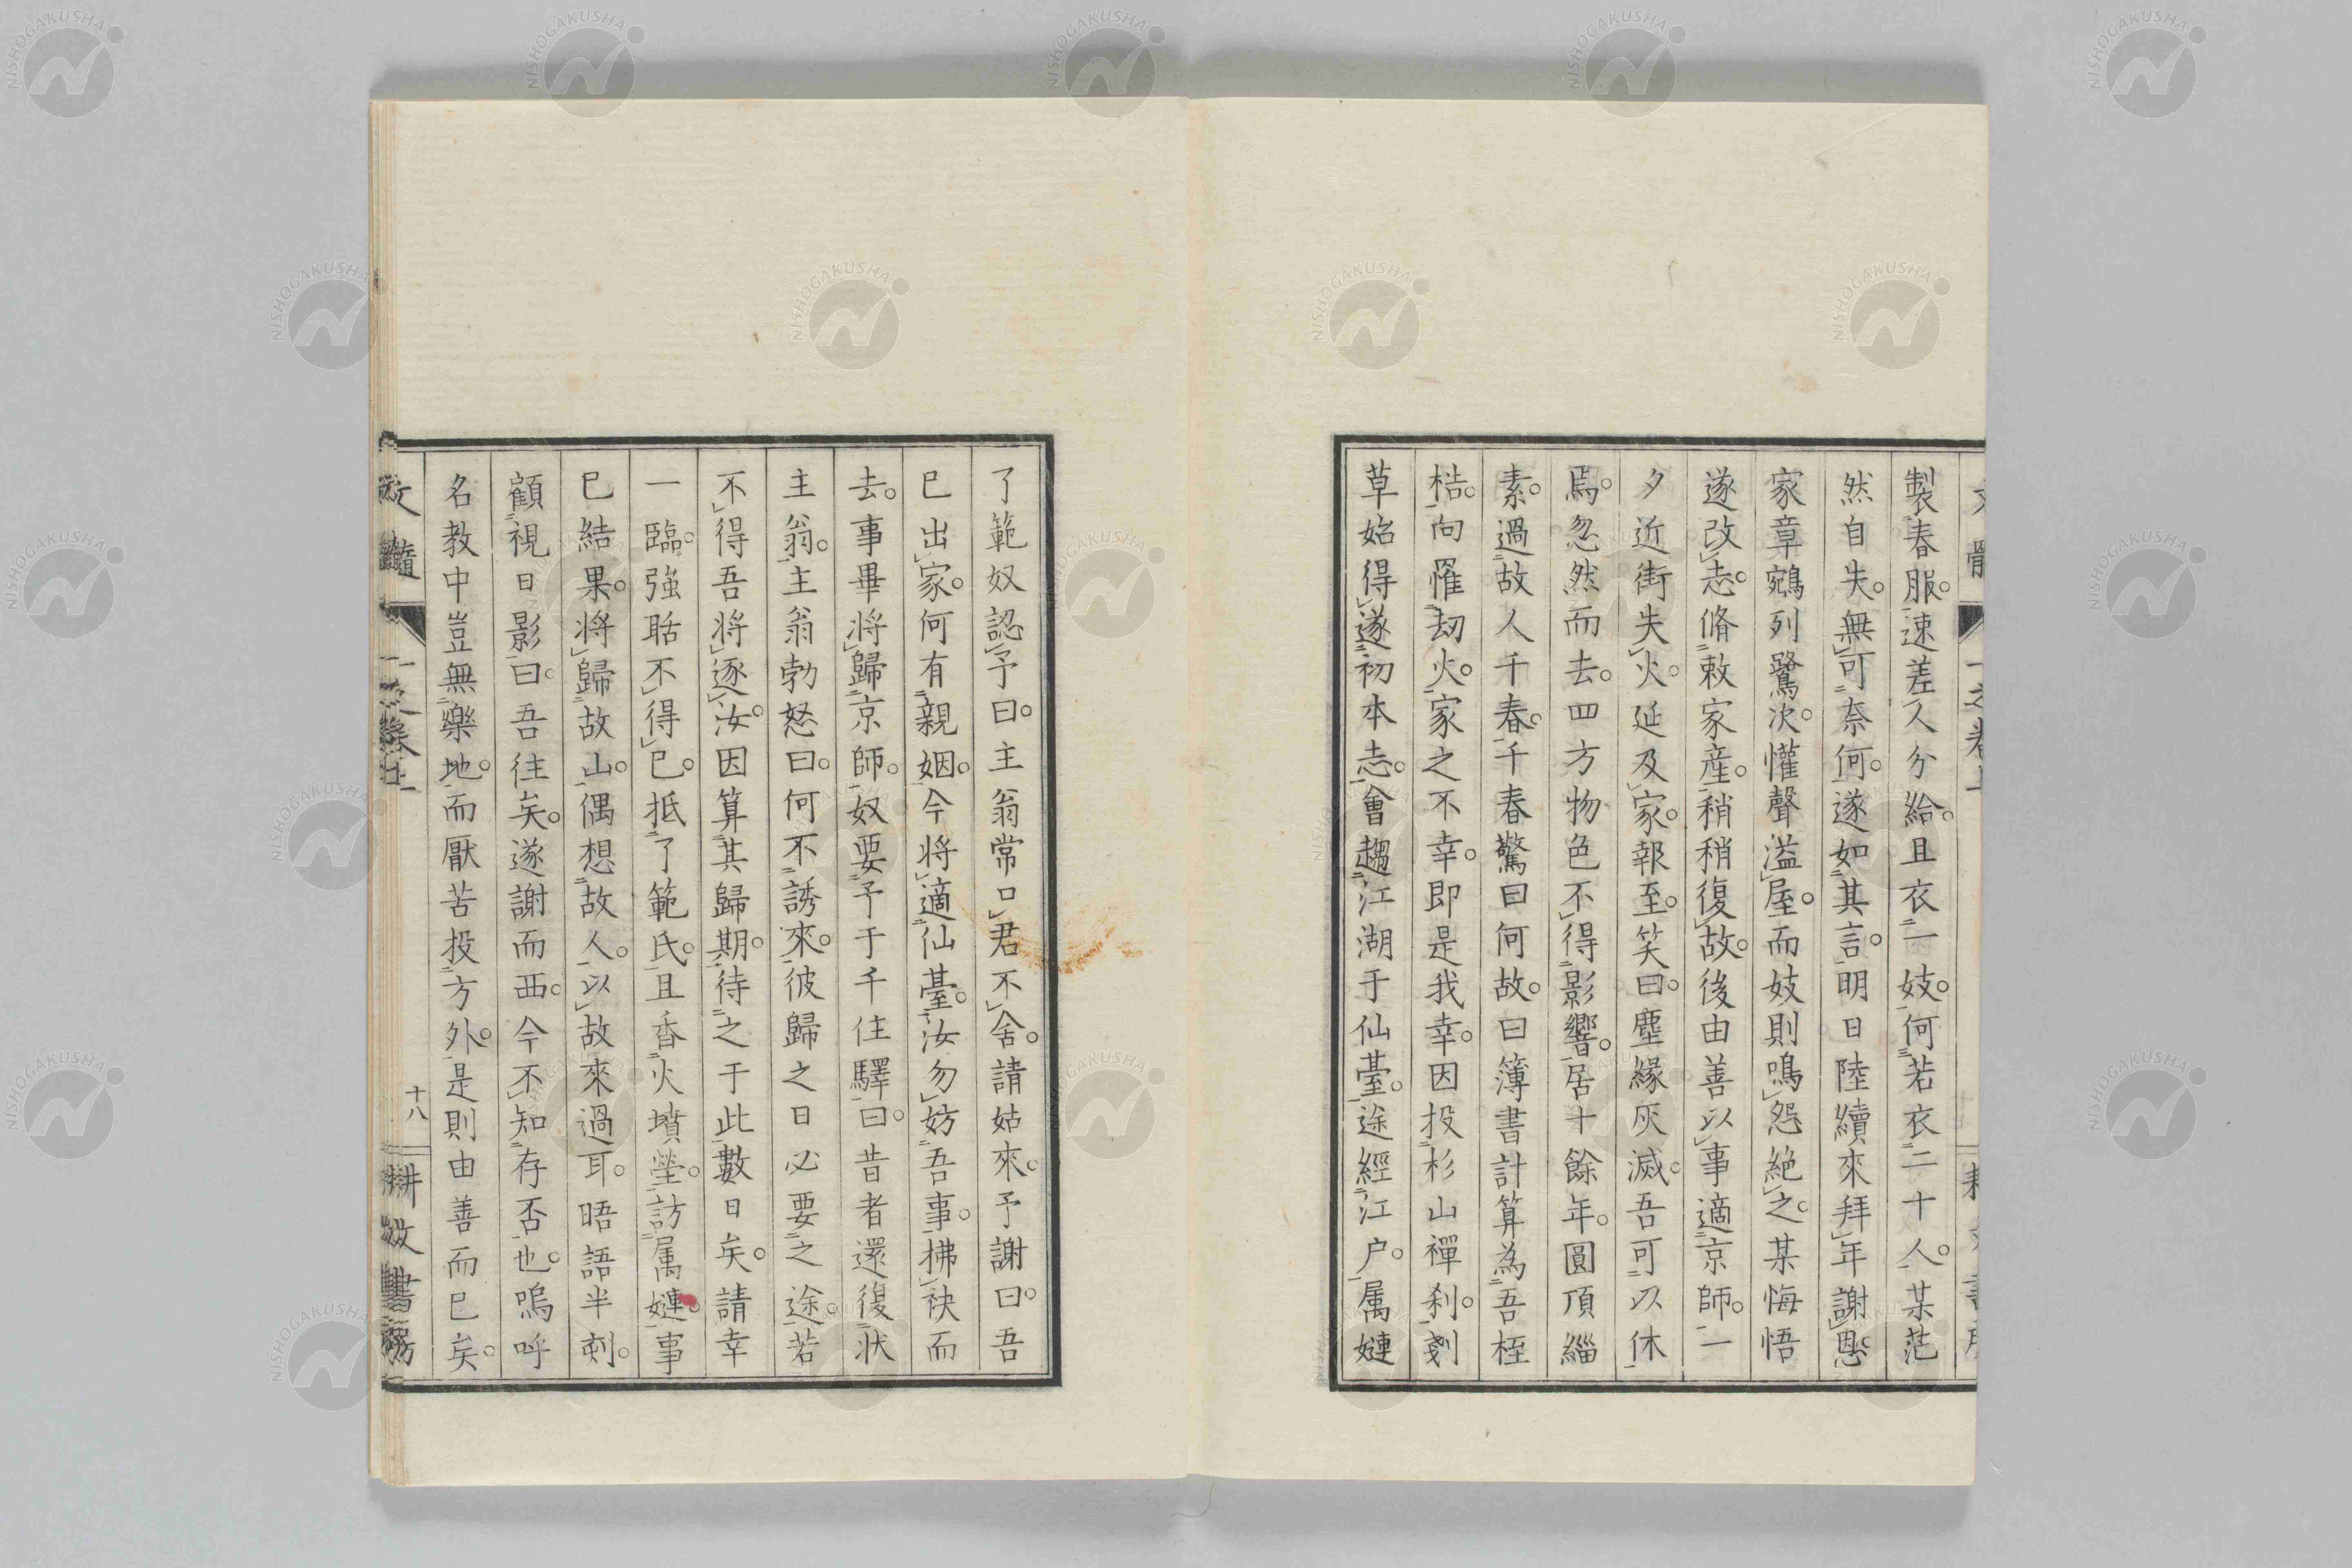 製春服。速差人分給。且衣一妓。何若衣二十人。某茫
然自失。無可奈何。遂如其言。明日陸續來拜年謝恩。
家章鵷列鷺次。懽聲溢屋。而妓則鳴怨絶之。某悔悟
遂改志。脩敕家産。稍稍復故。後由善以事適京師。一
夕近街失火。延及家。報至。笑曰。塵緣灰滅。吾可以休
焉。忽然而去。四方物色不得影響。居十餘年。圓頂緇
素。過故人千春。千春驚曰何故。曰簿書計算為吾桎
梏。向罹劫火。家之不幸。即是我幸。因投杉山禪刹。剗
草始得遂初本志。會趨江湖于仙臺。途經江户。属嫥
了範奴認予曰。主翁常口君不舍。請姑來。予謝曰。吾
已出家。何有親姻。今將適仙臺。汝勿妨吾事。拂袂而
去。事畢將歸京師。奴要予于千住驛。曰。昔者還復狀
主翁。主翁勃怒曰。何不誘來。彼歸之日必要之途。若
不得吾將逐汝。因算其歸期。待之于此數日矣。請幸
一臨。強聒不得已。抵了範氏。且香火墳塋。訪属嫥。事
已結果。將歸故山。偶想故人。以故來過耳。晤語半刻。
顧視日影。曰。吾往矣。遂謝而西。今不知存否也。嗚呼
名教中豈無樂地。而厭苦投方外。是則由善而已矣。
文髓
一之卷上
十八
耕文書房